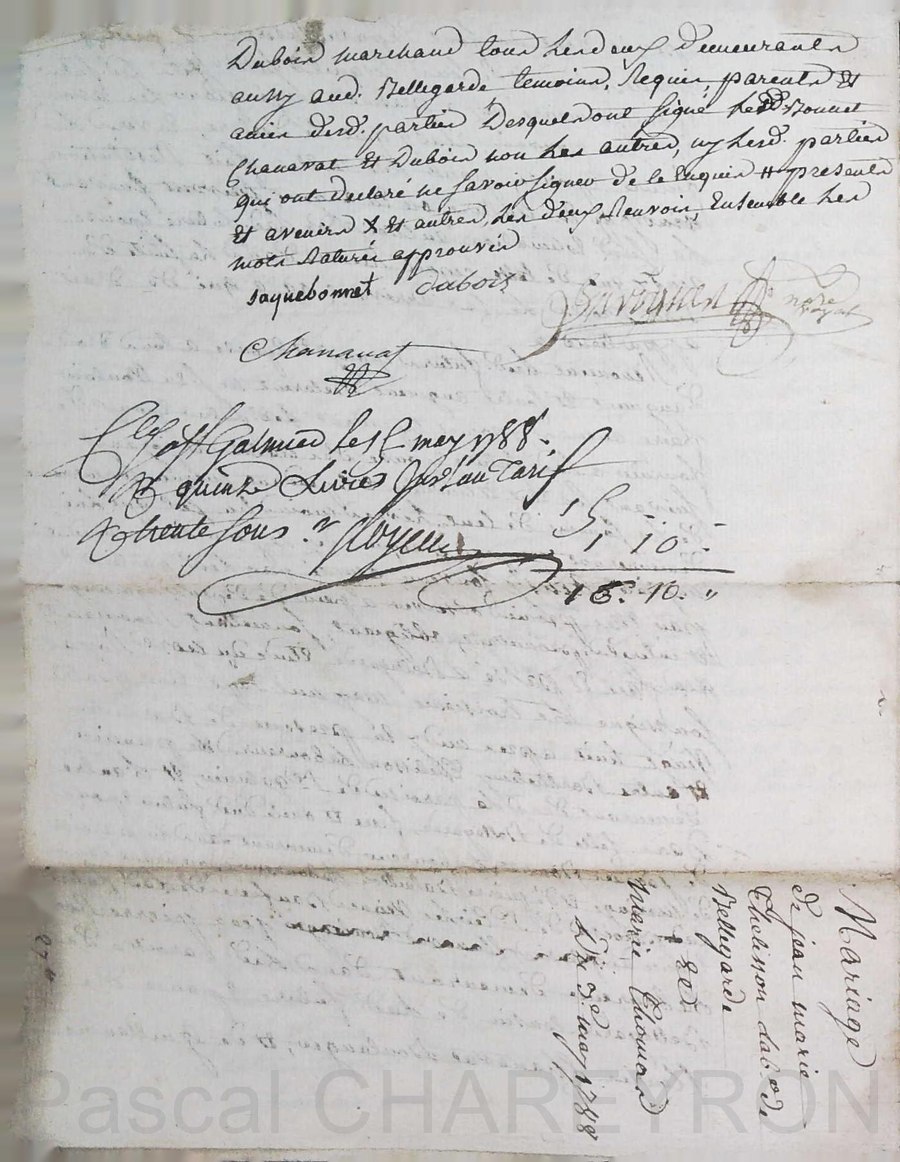 Dubois marchand tous lesdeux demeurants
aussy aud. Bellegarde temoins, Requis, parents Et
amis desd. parties Desquels ont signé lesd. Bonnet
Chanavat Et Dubois non Les autres, ny lesd. parties
qui ont declaré ne savoir signer de ce Enquis # presents
Et avenirs X Et autres, les deux Renvois, Ensemble Les
mots Raturés approuvés
Jaquebonnet dabois
nore
royal
Chanavat
St Galmier le 15 may 1788.
quinze Livres au Tarif
& trente sous
15 " -
1 10 -
16. 10. "
Mariage
de jean marie
Thelisson lab. de
Bellegarde
&
marie
Du 3e may 1788
Pascal CHAREYRON